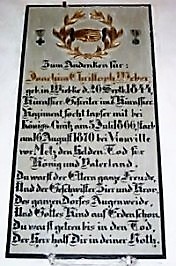 Zum Andenken für:
Joachim Christoph Weber,
geb. in Wiebke d. 26 Septb. 1844,
Kürassier, Gefreiter im Kürassier
Regiment, focht tapfer mit bei
Königs Grätz am 3 Juli 1866, starb
am 16 August 1870 bei Vionville
vor Metz den Helden Tod für
König und Vaterland.
Du warst der Eltern ganze Freude,
Und der Geschwister Zier und Kron,
Des ganzen Dorfes Augenweide,
Und Gottes Kind auf Erden schon.
Du warst getreu bis in den Tod
Der Herr half Dir in deiner Noth.